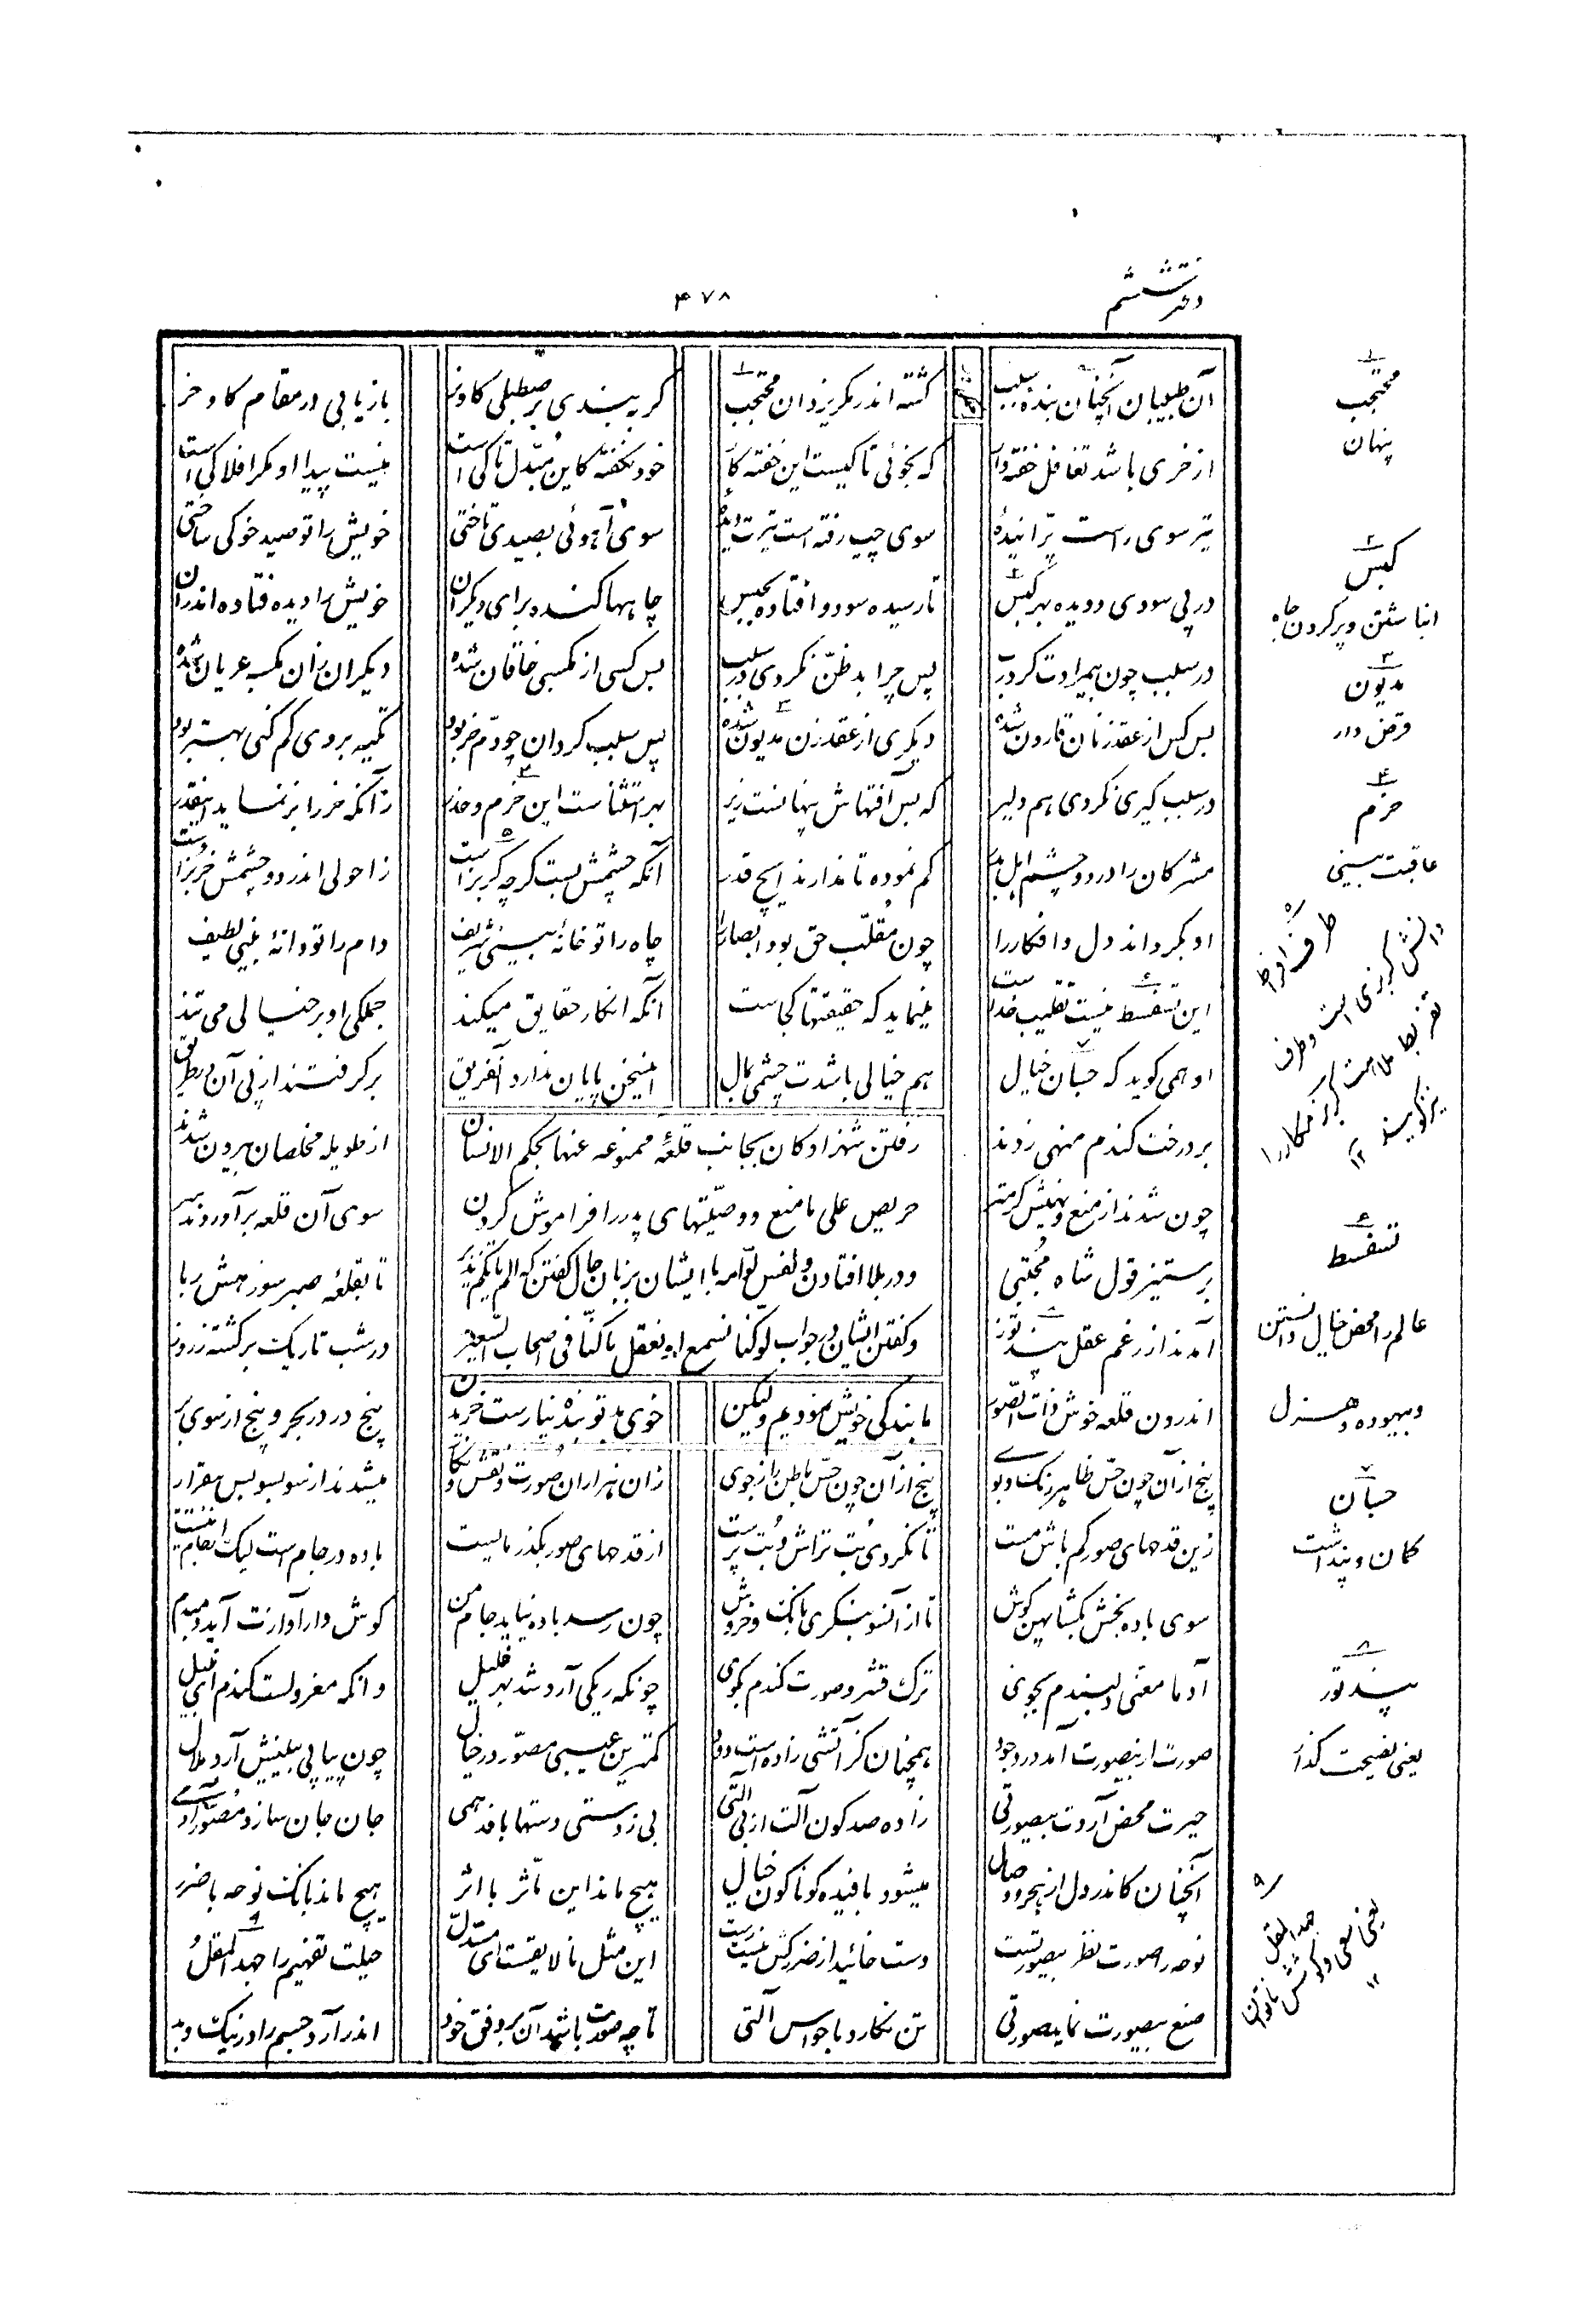 دفتر ششم
۴۷۸
آن طبیبان آنچنان بنده سبب گشته اندر مکر یزدان محتجب گر ببندی بر صطبلی گاو نر بازیابی در مقام گاو خر
از خری باشد تغافل خفته وار که نجوئی تا کیست این خفته کار خود نگفته کاین مبدل تا کی است نیست پیدا او مگر افلاکی است
تیر سوی راست پرانیده سوی چپ رفته است تیرت دیده سوی آهوئی بصیدی تاختی خویش را تو صید خوکی ساختی
در پی سودی دویده بهر کبس نارسیده سود و افتاده بحبس چاهها کنده برای دیگران خویش را دیده فتاده اندر آن
در سبب چون بیمرادت کرد رب پس چرا بدظن نگردی در سبب بس کسی از مکسبی خاقان شده دیگران زان مکسبه عریان شده
بس کس از عقد زنان قارون شده دیگری از عقد زن مدیون شده پس سبب گردان چو دم خر بود تکیه بر وی کم کنی بهتر بود
در سبب گیری نگردی هم دلیر که بس آفتهاش پنهانست زیر بهر استثناست این حزم و حذر زآنکه خر را بز نماید اینقدر
مشرکان را در دو چشم اهل بدر کم نموده تا ندارند ایچ قدر آنکه چشمش بست گرچه گربز است ز احولی اندر دو چشمش خر بز است
او بگرداند دل و افکار را چون مقلب حق بود ابصار را چاه را تو خانه بینی شریف دام را تو دانه بینی لطیف
این تسفسط نیست تقلیب خداست مینماید که حقیقتها کجاست آنکه انکار حقایق میکند جملگی او بر خیالی می تند
او همی گوید که حسبان خیال هم خیالی باشدت چشمی بمال این سخن پایان ندارد آنفریق برگرفتند از پی آن دژ طریق
رفتن شهزادگان بجانب قلعه ممنوعه عنها بحکم الانسان
حریص علی ما منع و وصیتهای پدر را فراموش کردن
و در بلا افتادن و نفس لوامه با ایشان بزبان حال گفتن که الم یاتکم نذیر
و گفتن ایشان در جواب لو کنا نسمع او نعقل ما کنا فی اصحاب السعیر
بر درخت گندم منهی زدند از طویله مخلصان بیرون شدند
چون شدند از منع و نهیش گرمتر سوی آن قلعه برآوردند سر
بر ستیز قول شاه مجتبی تا بقلعه صبر سوز هش ربا
آمدند از رغم عقل پند توز در شب تاریک برگشته ز روز
ما بندگی خویش نمودیم ولیکن خوی بد تو بنده نیارست خریدن
اندرون قلعه خوش ذات الصور پنج در در بحر و پنج از سوی بر
پنج از آن چون حس ظاهر رنگ و بو پنج از آن چون حس باطن رازجوی زان هزاران صورت و نقش و نگار میشدند از سو بسو بس بیقرار
زین قدحهای صور کم باش مست تا نگردی بت تراش و بت پرست از قدحهای صور بگذر مایست باده در جام است لیک از جام نیست
سوی باده بخش بگشا پهن گوش تا از آنسو بشنوی بانگ و خروش چون رسد باده نیاید جام من گوش دار آوازت آید دمبدم
آدما معنی دلبندم بجوی ترک قشر و صورت گندم بگوی چونکه ریگی آرد شد بهر خلیل وانکه معزولست گندم ای نبیل
صورت از بیصورت آمد در وجود همچنان کز آتشی زاده است دود کمترین عیب مصور در خیال چون پیاپی بینیش آرد ملال
حیرت محض آردت بیصورتی زاده صد گون آلت از بی آلتی بی ز دستی دستها بافد همی جان جان سازد مصور آدمی
آنچنان کاندر دل از هجر و وصال میشود بافیده گوناگون خیال هیچ ماند این مؤثر با اثر هیچ ماند بانگ نوحه با ضرر
نوحه را صورت ضرر بیصورتست دست خائید از ضرر کش نیست دست این مثل نالایقست ای مستدل حیلت تفهیم را جهد المقل
صنع بیصورت نماید صورتی تن نگارد با حواس آلتی تا چه صورت باشد آن بر وفق خود اندر آرد جسم را در نیک و بد
۱
محتجب
پنهان
۲
کبس
انباشتن و پر کردن چاه
۳
مدیون
قرض دار
۴
حزم
عاقبت بینی
۵
طرف افراط
دانش گربزی است و طرف
۶
تسفسط
عالم را محض خیال دانستن
و بیهوده و هزل
۷
حسبان
گمان و پنداشت
۸
پند توز
یعنی نصیحت گذار
۹
جهد المقل
یعنی سعی و کوشش ناتوان
۱۲